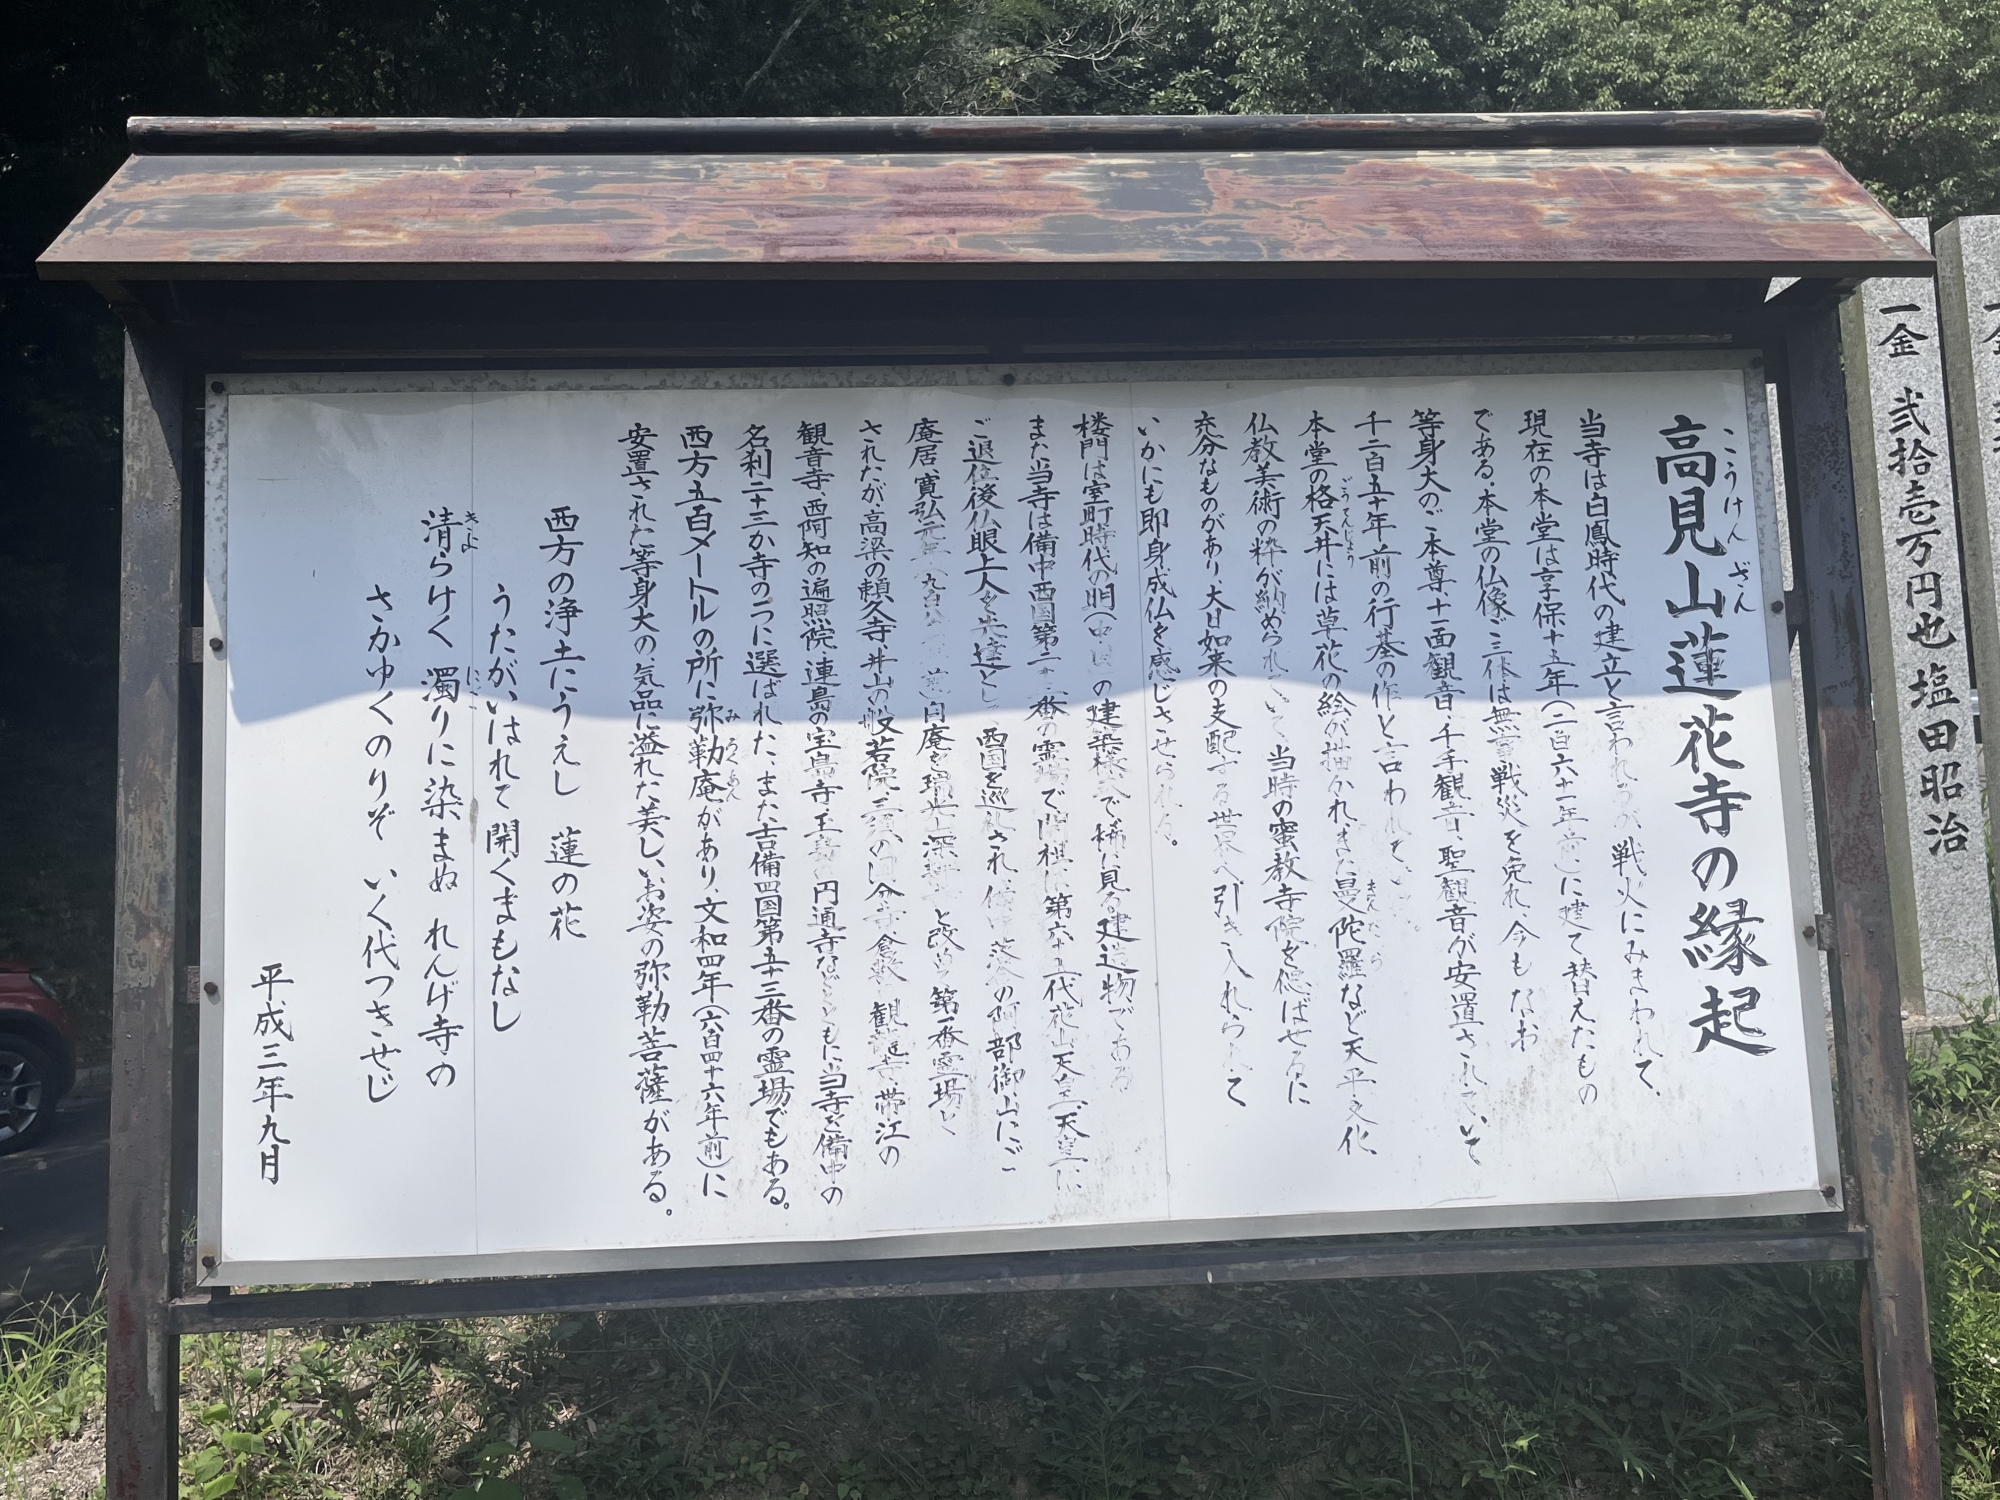 高見山蓮花寺の縁起
こうけん ざん
当寺は白鳳時代の建立と言われるが、戦火にみまわれて、
現在の本堂は享保十五年(二百六十一年前)に建て替えたもの
である。本堂の仏像ご三体は無事戦災を免れ、今もなお
等身大のご本尊、十一面観音、千手観音、聖観音が安置されていて
千二百五十年前の行基の作と言われている。
本堂の格天井には草花の絵が描かれ、また曼陀羅など天平文化、
ごうてんじょう
仏教美術の粋が納められていて 当時の蜜教寺院を偲ばせるに
充分なものがあり、大日如来の支配する世界へ引き入れられて
いかにも即身成仏を感じさせられる。
楼門は室町時代の明(中国)の建築様式で稀に見る建造物である
また当寺は備中西国第二番の霊場で開祖は第六十五代花山天皇、天皇は
ご退位後仏眼上人を先達として西国を巡礼され、備中 落合の阿部御山にご
庵居、寛弘元年(九百 年前)自庵を瑞光 深 と改め 第一番霊場と
されたが、高梁の頼久寺、井山の般若院 三須の国分寺 倉敷 観龍寺、帯江の
観音寺、西阿知の遍照院 連島の宝島寺、玉島の円通寺などともに当寺を備中の
名刹二十三か寺の一つに選ばれた、また吉備四国第五十三番の霊場でもある。
西方五百メートルの所に弥勒庵があり、文和四年(六百四十六年前)に
みろくあん
安置された等身大の気品に溢れた美しいお姿の弥勒菩薩がある。
西方の浄土にうえし 蓮の花
うたがいはれて 開くまもなし
清らけく 濁りに染まぬ れんげ寺の
きよ にご
さかゆくのりぞ いく代つきせじ
平成三年九月
一金 弐拾壱万円也 塩田昭治